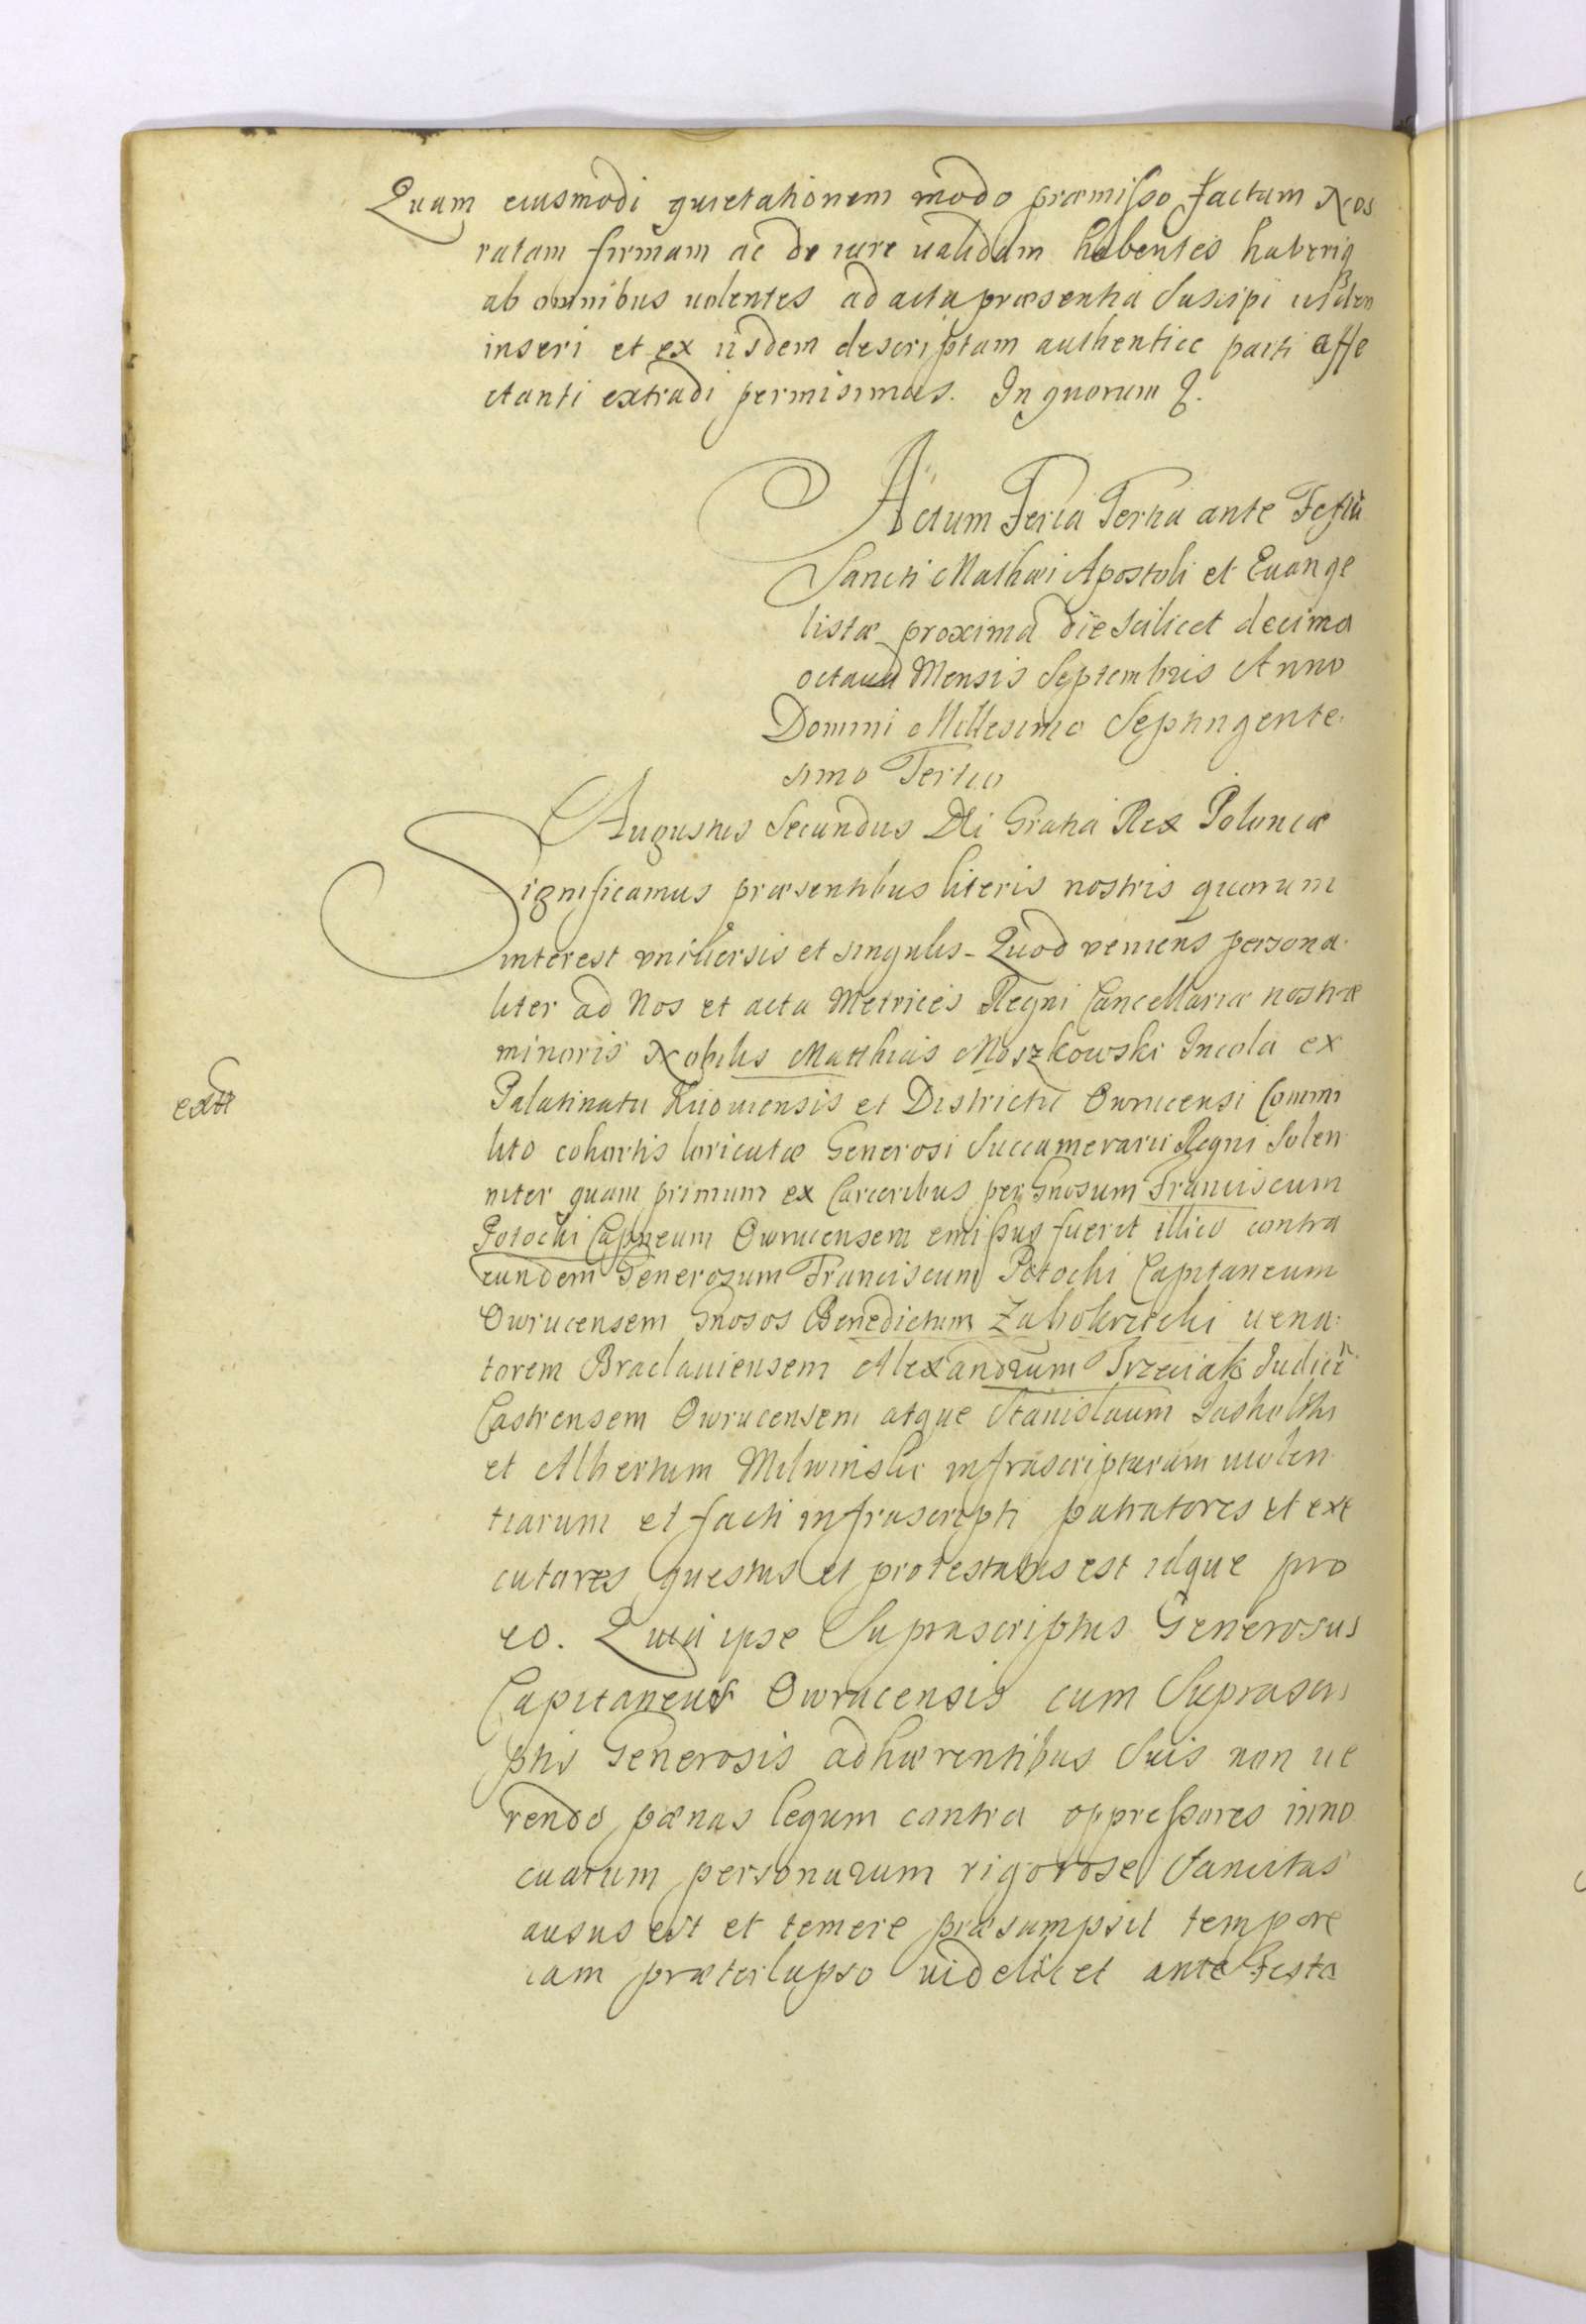 Quam eiusmodi quietationem modo præmisso factam Nos
ratam firmam ac de iure ualidam habentes haberiq
ab omnibus uolentes ad acta præsentia Suscipi iisdem
inseri et ex iisdem descriptam authentice parti affe
ctanti extradi permisimus. In quorum
Actum Feria Tertia ante Festũ
Sancti Mathæi Apostoli et Euange
listæ proxima die Scilicet decima
octaua Mensis Septembris Anno
Domini Millesimo Septingente
simo Tertio
Augustus Secundus DEi Gratia Rex Poloniæ
Significamus præsentibus literis nostris quorum
interest vniuersis et singulis - Quod veniens persona
liter ad Nos et acta Metrices Regni Cancellariæ nostræ
minoris Nobilis Matthias Moszkowski Incola ex
extt
Palatinatu Kiiouiensis et Districtu Owrucensi Commi
lito cohortis loricatæ Generosi Succamerarii Regni Solen
niter quam primum ex Carceribus per Gnosum Franciscum
Potocki Capneum Owrucensem emissus fuerit illico contra
eundem Generosum Franciscum Potocki Capitaneum
Owrucensem Gnosos Benedictum Zabokrzicki uena
torem Braclauiensem Alexandrum Trzeciak Judicẽ
Castrensem Owrucensem atque Stanislaum
et Albertum Milwinski infrascriptarum uiolen
tiarum et facti infrascripti patratores et exe
cutores questus et protestatus est idque pro
eo. Quia ipse Suprascriptus Generosus
Capitaneus Owrucensis cum Suprascri
ptis Generosis adhærentibus Suis non ue
rendo pænas legum contra oppressores inno
cuarum personarum rigorose Sancitas
ausus est et temere præsumpsit tempore
iam præterlapso uidelicet ante Festa